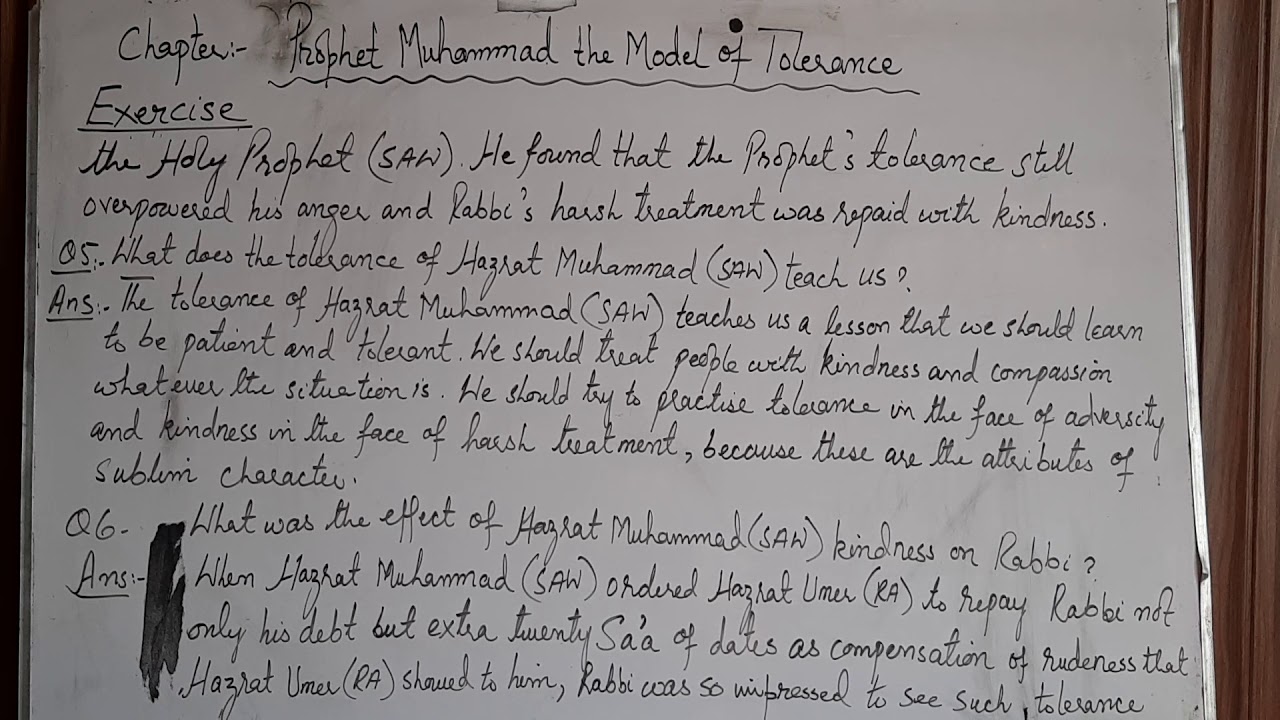 Chapter:- Prophet Muhammad the Model of Tolerance
Exercise
the Holy Prophet (SAW). He found that the Prophet's tolerance still
overpowered his anger and Rabbi's harsh treatment was repaid with kindness.
Q5:- What does the tolerance of Hazrat Muhammad (SAW) teach us?
Ans:- The tolerance of Hazrat Muhammad (SAW) teaches us a lesson that we should learn
to be patient and tolerant. We should treat people with kindness and compassion
whatever the situation is. We should try to practise tolerance in the face of adversity
and kindness in the face of harsh treatment, because these are the attributes of
sublim character.
Q6- What was the effect of Hazrat Muhammad (SAW) kindness on Rabbi?
Ans:- When Hazrat Muhammad (SAW) ordered Hazrat Umer (RA) to repay Rabbi not
only his debt but extra twenty Sa'a of dates as compensation of rudeness that
Hazrat Umer (RA) showed to him, Rabbi was so impressed to see such tolerance